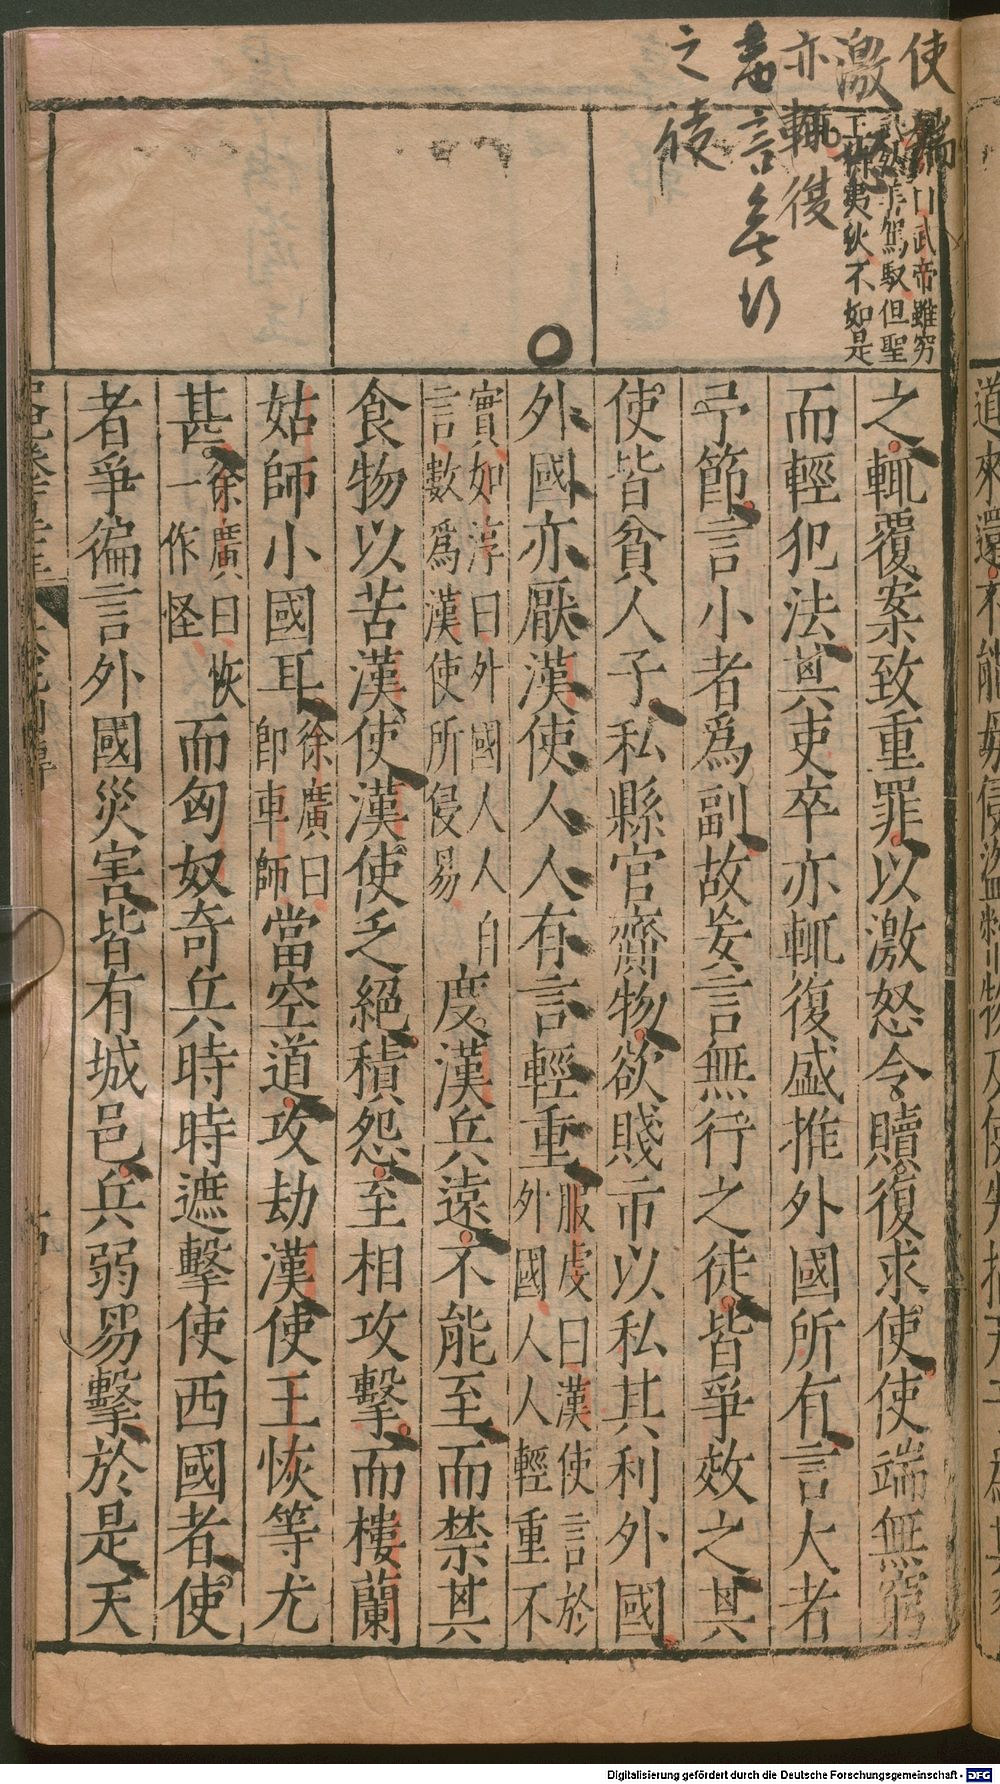 之輒覆案致重罪以激怒令贖復求使使端無窮
而輕犯法其吏卒亦輒復盛推外國所有言大者
予節言小者爲副故妄言無行之徒皆爭效之其
使皆貧人子私縣官齎物欲賤市以私其利外國
外國亦厭漢使人人有言輕重
服虔曰漢使言於
外國人人輕重不
實如淳曰外國人人自
言數爲漢使所侵易
度漢兵遠不能至而禁其
食物以苦漢使漢使乏絕積怨至相攻擊而樓蘭
姑師小國耳
徐廣曰
即車師
當空道攻劫漢使王恢等尤
甚
徐廣曰恢
一作怪
而匈奴奇兵時時遮擊使西國者使
者爭徧言外國災害皆有城邑兵弱易擊於是天
武帝雖窮
駕馭但聖
夷狄不如是
使端
激怒
亦輒復
言無行
之徒
Digitalisierung gefördert durch die Deutsche Forschungsgemeinschaft - DFG